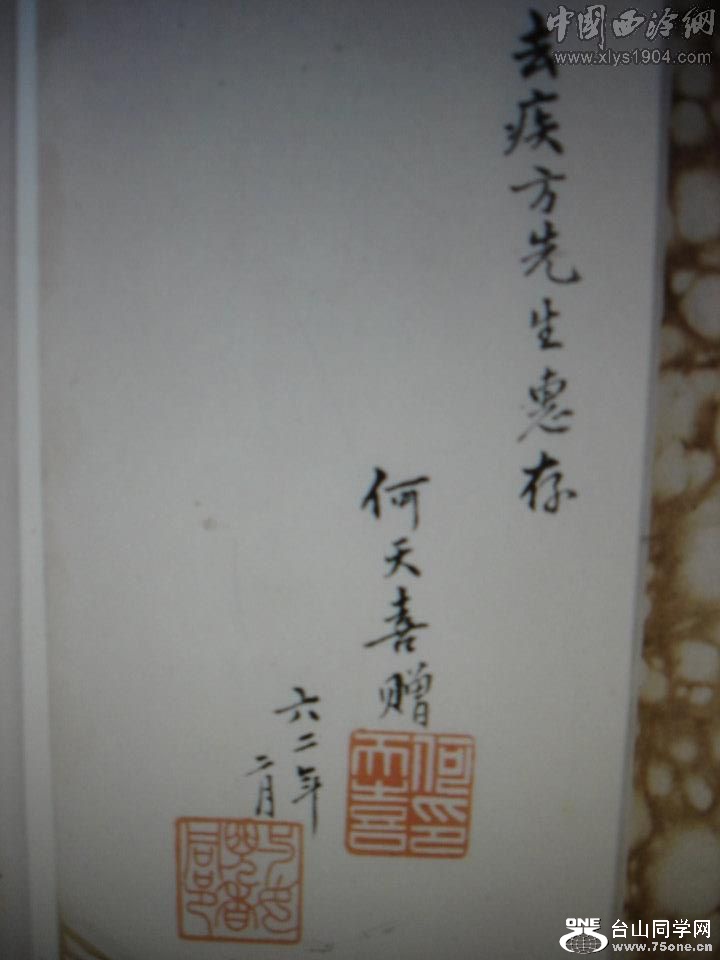 中国西泠網
www.xlys1904.com
去疾方先生惠存
何天喜赠
六二年
二月
何印
天喜
ONE
台山同学网
www.75one.cn